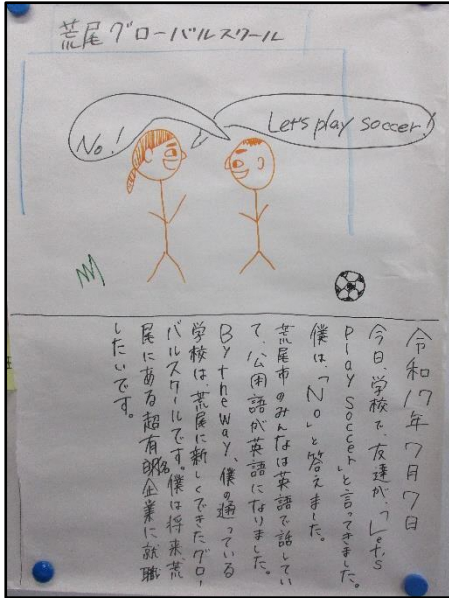 荒尾グローバルスクール
No!
Let's play soccer!
令和17年7月7日
今日、学校で、友達が、「Let's
play soccer」と言ってきました。
僕は、「No」と答えました。
荒尾市のみんなは英語で話してい
て、公用語が英語になりました。
By the way, 僕の通っている
学校は、荒尾に新しくできたグロー
バルスクールです。僕は将来、荒
尾にある超有名企業に就職
したいです。